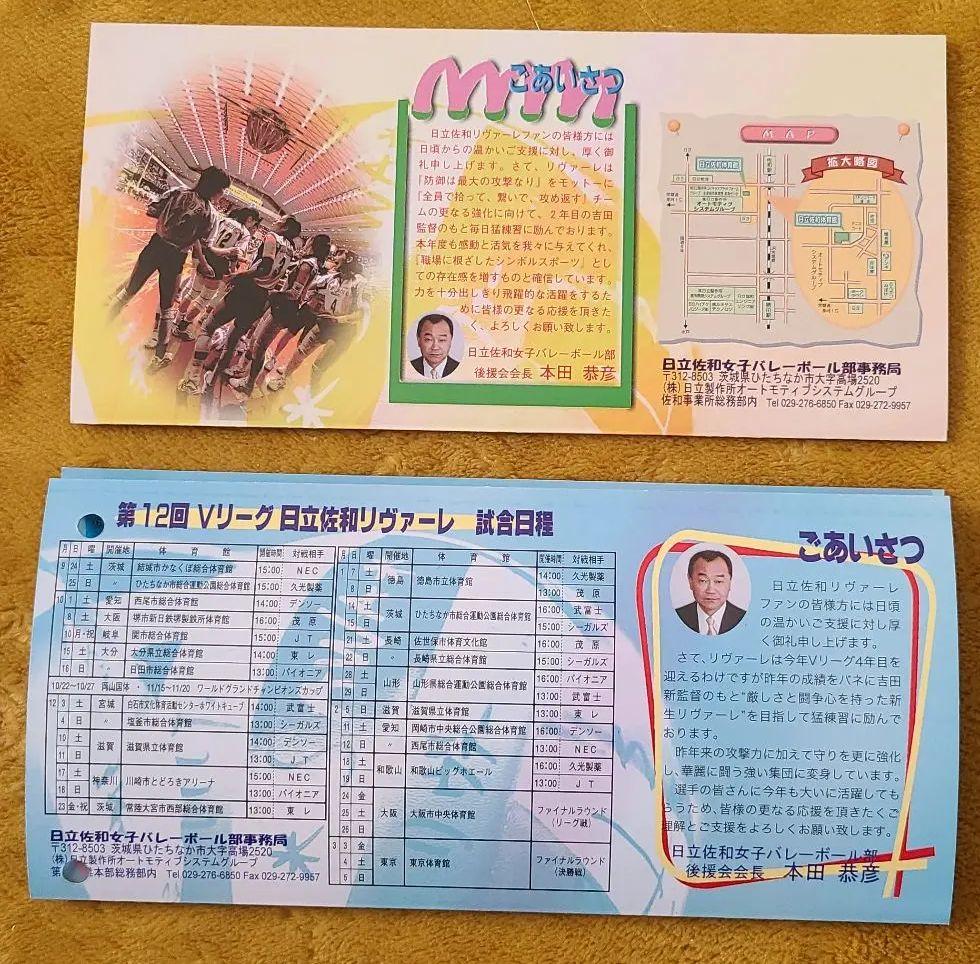 ごあいさつ
日立佐和リヴァーレファンの皆様方には
日頃からの温かいご支援に対し、厚く御
礼申し上げます。さて、リヴァーレは
『防御は最大の攻撃なり』をモットーに
『全員で拾って、繋いで、攻め返す』チー
ムの更なる強化に向けて、2年目の吉田
監督のもと毎日猛練習に励んでおります。
本年度も感動と活気を我々に与えてくれ、
『職場に根ざしたシンボルスポーツ』とし
ての存在感を増すものと確信しています。
力を十分出しきり飛躍的な活躍をするた
めに皆様の更なる応援を頂きた
く、よろしくお願い致します。
日立佐和女子バレーボール部
後援会会長 本田 恭彦
MAP
拡大略図
日立佐和体育館
日立佐和体育館
オートモティブ
システムグループ
日立佐和女子バレーボール部事務局
〒312-8503 茨城県ひたちなか市大字高場2520
(株)日立製作所オートモティブシステムグループ
佐和事業所総務部内 Tel 029-276-6850 Fax 029-272-9957
第12回 Vリーグ 日立佐和リヴァーレ 試合日程
月 日 曜 開催地 体育館 開催時間 対戦相手
9 24 土 茨城 結城市かなくぼ総合体育館 15:00 NEC
25 日 〃 ひたちなか市総合運動公園総合体育館 15:00 久光製薬
10 1 土 愛知 西尾市総合体育館 14:00 デンソー
8 土 大阪 堺市新日鉄堺製鉄所体育館 16:00 茂原
10 月・祝 岐阜 関市総合体育館 15:00 JT
15 土 大分 大分県立総合体育館 14:00 東レ
16 日 〃 日田市総合体育館 13:00 パイオニア
10/22〜10/27 岡山国体 ・ 11/15〜11/20 ワールドグランドチャンピオンズカップ
12 3 土 宮城 白石市文化体育活動センターホワイトキューブ 14:00 武富士
4 日 〃 塩釜市総合体育館 13:00 シーガルズ
10 土 滋賀 滋賀県立体育館 14:00 デンソー
11 日 13:00 JT
17 土 神奈川 川崎市とどろきアリーナ 15:00 NEC
18 日 13:00 パイオニア
23 金・祝 茨城 常陸大宮市西部総合体育館 13:00 東レ
月 日 曜 開催地 体育館 開催時間 対戦相手
1 7 土 徳島 徳島市立体育館 14:00 久光製薬
8 日 13:00 茂原
14 土 茨城 ひたちなか市総合運動公園総合体育館 16:00 武富士
15 日 15:00 シーガルズ
21 土 長崎 佐世保市体育文化館 16:00 茂原
22 日 〃 長崎県立総合体育館 15:00 シーガルズ
28 土 山形 山形県総合運動公園総合体育館 16:00 パイオニア
29 日 13:00 武富士
2 5 日 滋賀 滋賀県立体育館 13:00 東レ
11 土 愛知 岡崎市中央総合公園総合体育館 16:00 デンソー
12 日 〃 西尾市総合体育館 13:00 NEC
18 土 和歌山 和歌山ビッグホエール 16:00 久光製薬
19 日 13:00 JT
24 金 大阪 大阪市中央体育館 ファイナルラウンド
25 土 (リーグ戦)
26 日
3 3 金 東京 東京体育館 ファイナルラウンド
4 土 (決勝戦)
5 日
日立佐和女子バレーボール部事務局
〒312-8503 茨城県ひたちなか市大字高場2520
(株)日立製作所オートモティブシステムグループ
本部総務部内 Tel 029-276-6850 Fax 029-272-9957
ごあいさつ
日立佐和リヴァーレ
ファンの皆様方には日頃
の温かいご支援に対し厚
く御礼申し上げます。
さて、リヴァーレは今年Vリーグ4年目を
迎えるわけですが昨年の成績をバネに吉田
新監督のもと"厳しさと闘争心を持った新
生リヴァーレ"を目指して猛練習に励んで
おります。
昨年来の攻撃力に加えて守りを更に強化
し、華麗に闘う強い集団に変身しています。
選手の皆さんに今年も大いに活躍しても
らうため、皆様の更なる応援を頂きたくご
理解とご支援をよろしくお願い致します。
日立佐和女子バレーボール部
後援会会長 本田 恭彦